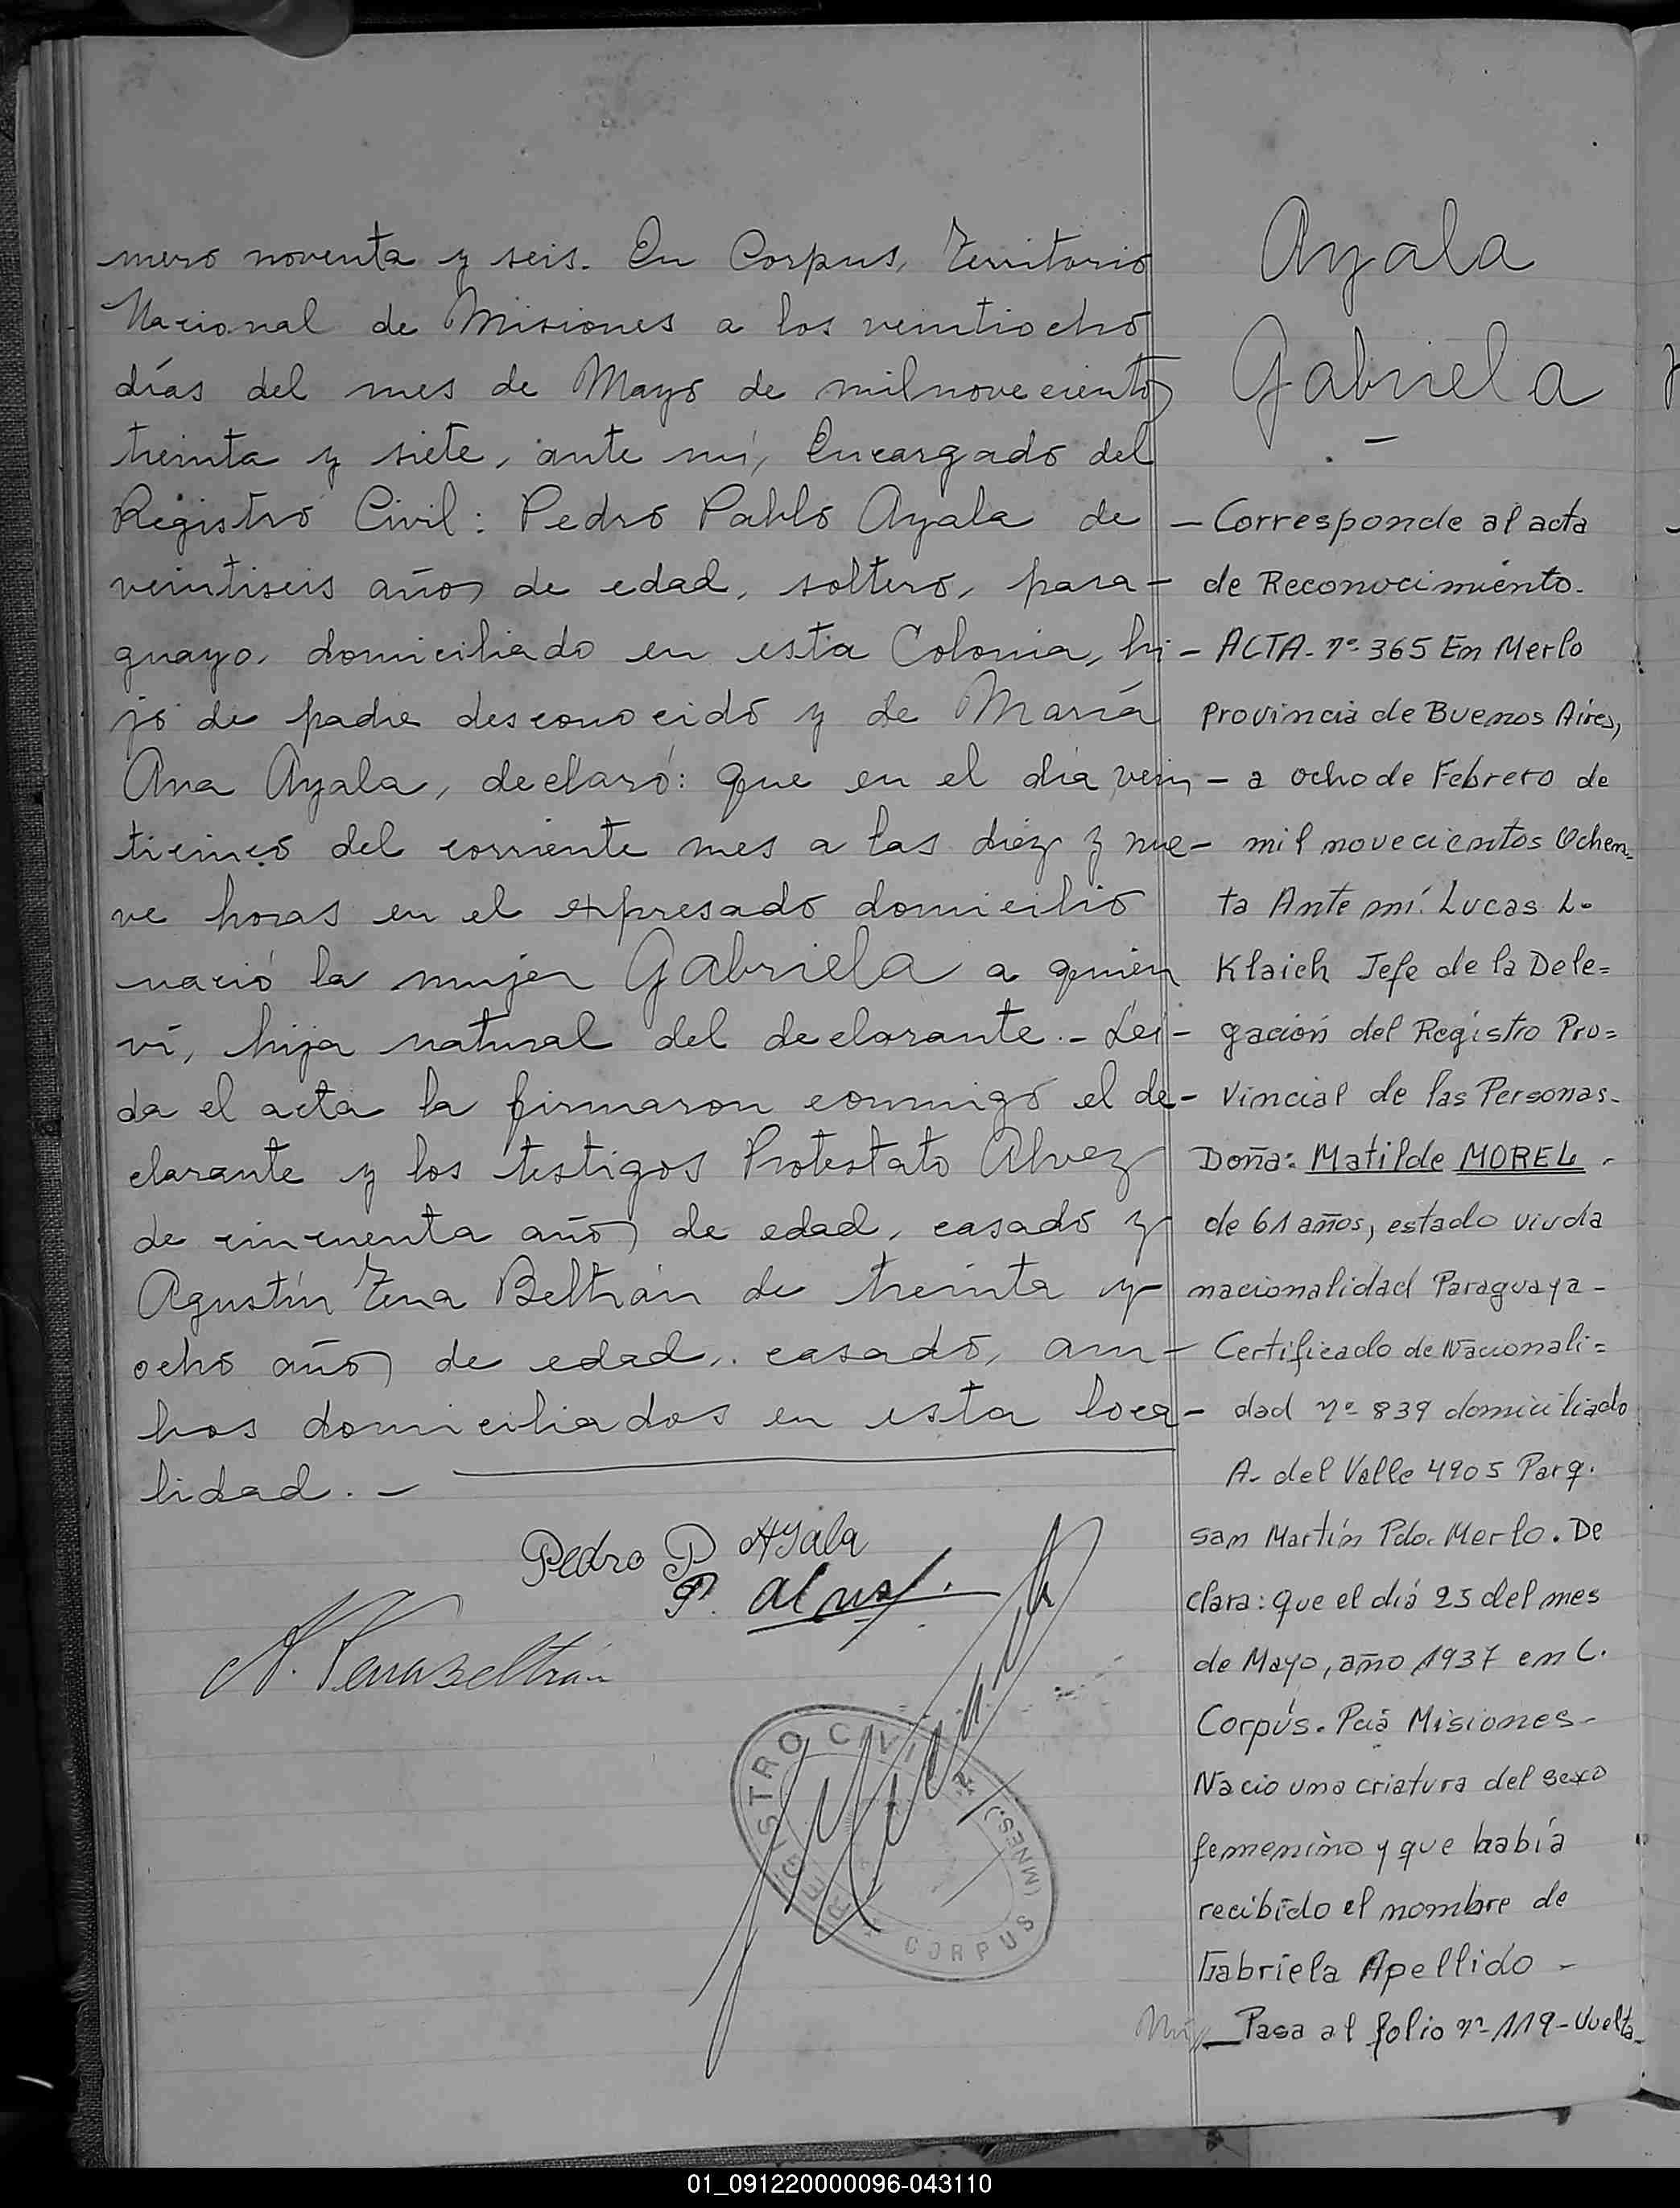 mero noventa y seis. En Corpus, Territorio
Nacional de Misiones a los veintiocho
días del mes de Mayo de milnovecientos
treinta y siete, ante mí, Encargado del
Registro Civil: Pedro Pablo Ayala de
veintiseis años de edad, soltero, para-
guayo, domiciliado en esta Colonia, hi-
jo de padre desconocido y de María
Ana Ayala, declaró: que en el día vein
ticinco del corriente mes a las diez y nue-
ve horas en el expresado domicilio
nació la mujer Gabriela a quien
ví, hija natural del declarante.- Leí-
da el acta la firmaron conmigo el de-
clarante y los testigos Protestato Alvez
de cincuenta años de edad, casado y
Agustín Tena Beltrán de treinta y
ocho años de edad, casado, am-
bos domiciliados en esta loca-
lidad.-
Pedro P Ayala
P. Alvez
A. Tena Beltrán
REGISTRO CIVIL
(MNES.)
CORPUS
Ayala
Gabriela
- Corresponde al acta
de Reconocimiento.
- ACTA- nº 365 En Merlo
Provincia de Buenos Aires,
- a ocho de Febrero de
mil novecientos Ochen=
ta Ante mí: Lucas L.
Klaich Jefe de la Dele=
gación del Registro Pro=
vincial de las Personas-
Doña: Matilde MOREL -
de 61 años, estado viuda
nacionalidad Paraguaya-
Certificado de Nacionali=
dad nº 839 domiciliado
A. del Valle 4905 Parq.
San Martín Pdo. Merlo. De
clara: que el día 25 del mes
de Mayo, año 1937 en C.
Corpús. Pcia Misiones-
Nacio una criatura del sexo
femenino y que había
recibido el nombre de
Gabriela Apellido -
Pasa al folio nº 119-Vuelta
01_091220000096-043110